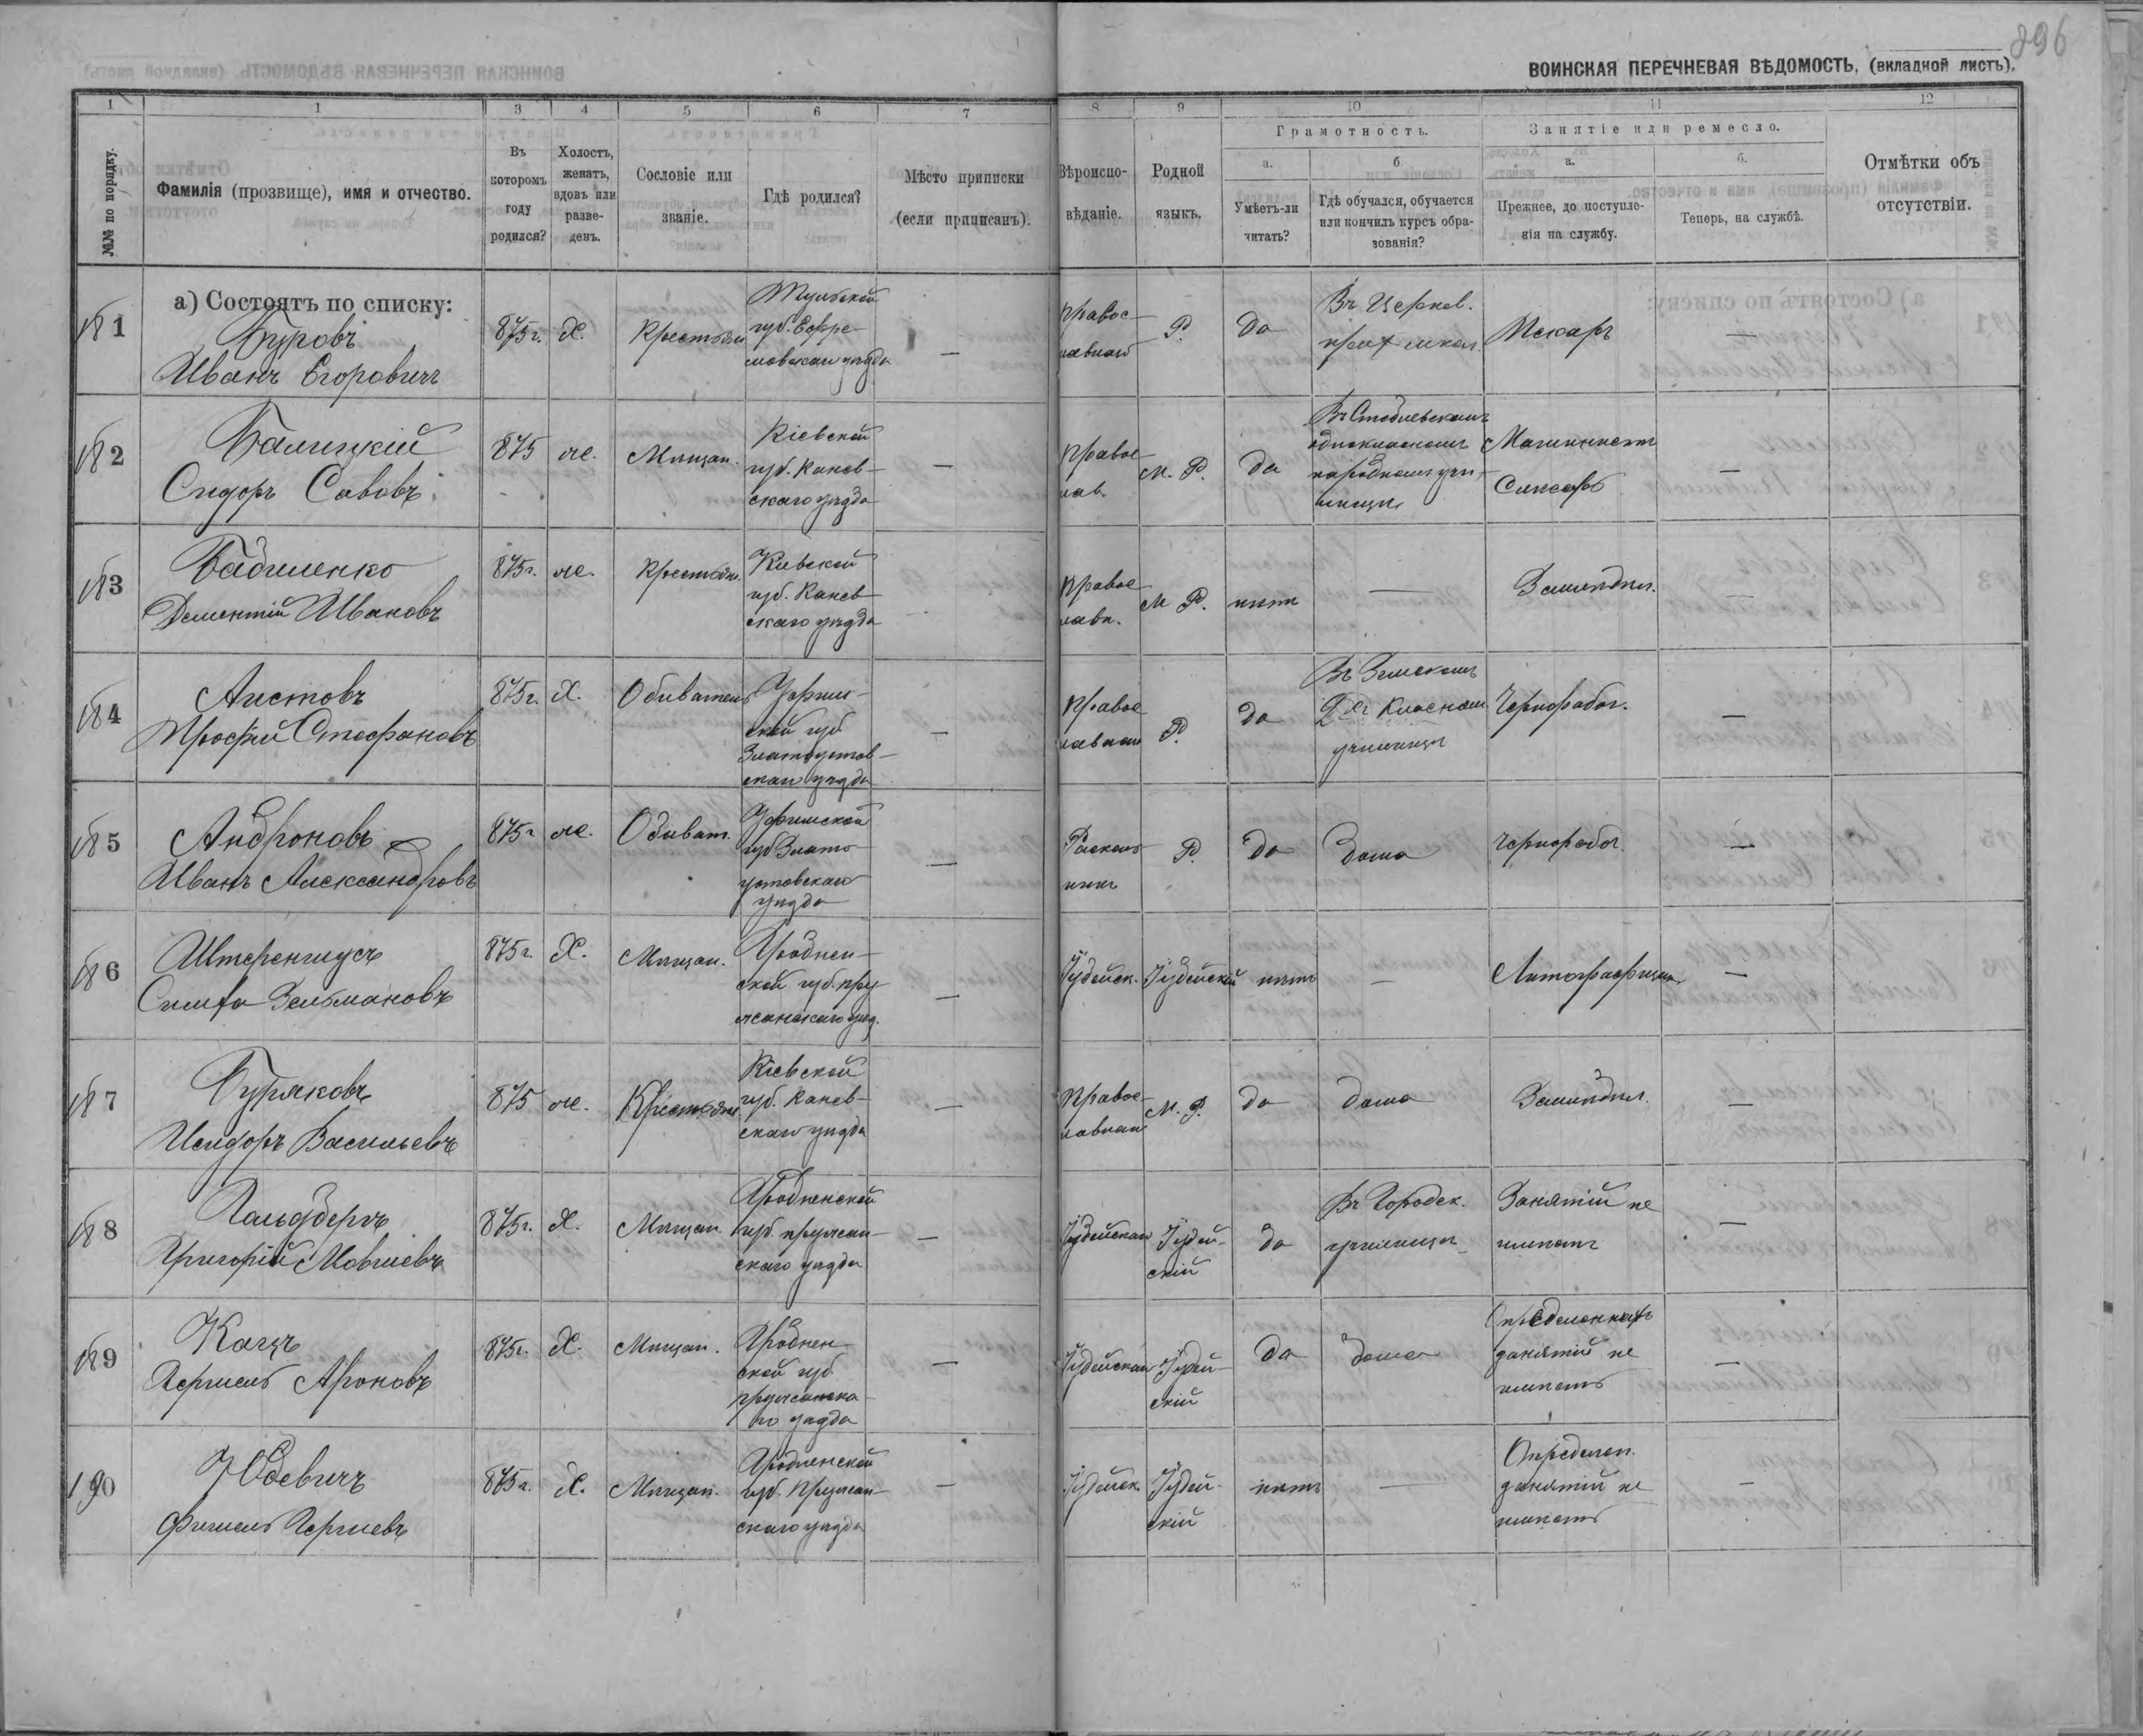 896
ВОИНСКАЯ ПЕРЕЧНЕВАЯ ВѢДОМОСТЬ, (вкладной листъ).
1 1 3 4 5 6 7 8 9 10 11 12
№№ по порядку.
Фамилія (прозвище), имя и отчество.
Въ
которомъ
году
родился?
Холостъ,
женатъ,
вдовъ или
разве-
денъ.
Сословіе или
званіе.
Гдѣ родился?
Мѣсто приписки
(если приписанъ).
Вѣроиспо-
вѣданіе.
Родной
языкъ.
Грамотность.
а.
Умѣетъ-ли
читать?
б
Гдѣ обучался, обучается
или кончилъ курсъ обра-
зованія?
Занятіе или ремесло.
а.
Прежнее, до поступле-
нія на службу.
б.
Теперь, на службѣ.
Отмѣтки объ
отсутствіи.
а) Состоятъ по списку:
181
Буровъ
Иванъ Егоровичъ
875г.
Х.
Крестьян
Тульской
губ. Ефре-
мовскаго уѣзда
—
Правос-
лавнаго
Р.
да
Въ Церков.
прих школ.
Пекарь
—
182
Балицкій
Сидоръ Савовъ
875
же.
Мѣщан.
Кіевской
губ. Канев-
скаго уѣзда
—
Правос-
лав.
М. Р.
да
одноклассномъ
народномъ учи-
лищѣ
Машинистъ
Слесарь
—
183
Бабиченко
Дементій Ивановъ
875г.
же.
Крестьян.
Кіевской
губ. Канев-
скаго уѣзда
Правос-
лавн.
М Р.
нѣтъ
—
Земледѣл.
—
184
Аистовъ
Стефановъ
875г.
Х.
Обыватель
Уфим-
ской губ
Златоустов-
скаго уѣзда
—
Правос
лавнаго
Р.
да
Въ Земскомъ
2хъ Класномъ
училищѣ
Чернорабоч.
—
185
Андроновъ
Иванъ Александровъ
875г
же.
Обыват.
Уфимской
губ Злато-
устовскаго
уѣзда
—
Расколь
никъ
Р.
да
дома
Чернорабоч.
—
186
Симха Зельмановъ
875г.
Х.
Мѣщан.
Гроднен-
ской губ. Пру-
жанскаго уѣзд.
—
Іудейск.
Іудейскій
нѣтъ
—
—
187
Буряковъ
Исидоръ Васильевъ
875
же.
Крестьян
Кіевской
губ. Канев-
скаго уѣзда
—
Правос-
лавнаго
М. Р.
да
дома
Земледѣл.
—
188
Гольдбергъ
Григорій Мовшевъ
875г.
Х.
Мѣщан.
Гродненской
губ. Пружан-
скаго уѣзда
—
Іудейскаго
Іудей-
скій
да
Въ Городск.
училищѣ
Занятій не
имѣетъ
—
189
Кацъ
Гершель Ароновъ
875г.
Х.
Мѣщан.
Гроднен
ской губ.
Пружанска-
го уѣзда
—
Іудейскаго
Іудей-
скій
да
дома
Опредѣленныхъ
занятій не
имѣетъ
—
190
Юдевичъ
Фишель Гершевъ
875г.
Х.
Мѣщан.
Гродненской
губ. Пружан-
скаго уѣзда
—
Іудейск.
Іудей-
скій
нѣтъ
—
Опредѣлен.
занятій не
имѣетъ
—